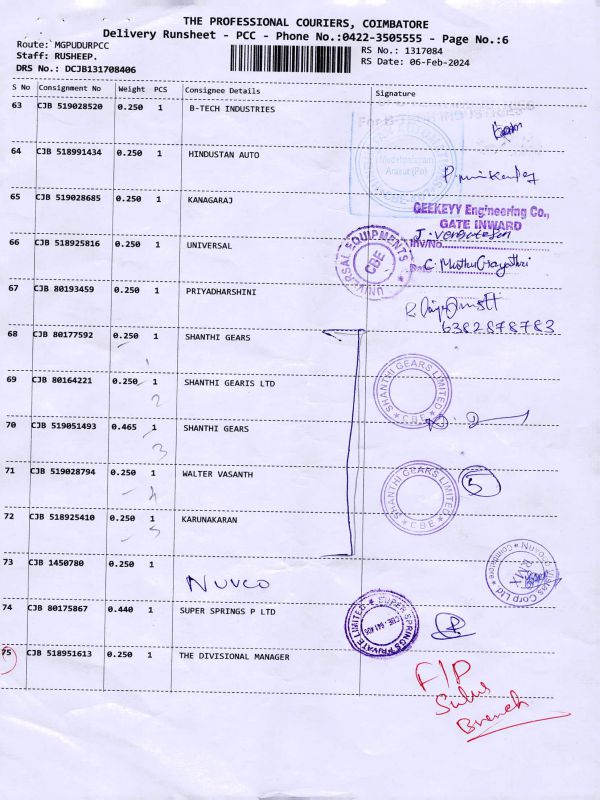 THE PROFESSIONAL COURIERS, COIMBATORE
Delivery Runsheet - PCC - Phone No.:0422-3505555 - Page No.:6
Route: MGPUDURPCC
RS No.: 1317084
Staff: RUSHEEP.
RS Date: 06-Feb-2024
DRS No.: DCJB131708406
S No Consignment No Weight PCS Consignee Details Signature
63 CJB 519028520 0.250 1 B-TECH INDUSTRIES
64 CJB 518991434 0.250 1 HINDUSTAN AUTO
65 CJB 519028685 0.250 1 KANAGARAJ
GEEKEYY Engineering Co.,
GATE INWARD
66 CJB 518925816 0.250 1 UNIVERSAL
UNIVERSAL EQUIPMENTS
CBE
67 CJB 80193459 0.250 1 PRIYADHARSHINI
6382878783
68 CJB 80177592 0.250 1 SHANTHI GEARS
1
69 CJB 80164221 0.250 1 SHANTHI GEARIS LTD
2
SHANTHI GEARS LIMITED
CBE
70 CJB 519051493 0.465 1 SHANTHI GEARS
3
71 CJB 519028794 0.250 1 WALTER VASANTH
4
5
SHANTHI GEARS LIMITED
CBE
72 CJB 518925410 0.250 1 KARUNAKARAN
5
73 CJB 1450780 0.250 1
NUVCO
74 CJB 80175867 0.440 1 SUPER SPRINGS P LTD
SUPER SPRINGS PRIVATE LIMITED
75 CJB 518951613 0.250 1 THE DIVISIONAL MANAGER
F/P
Sulur
Branch